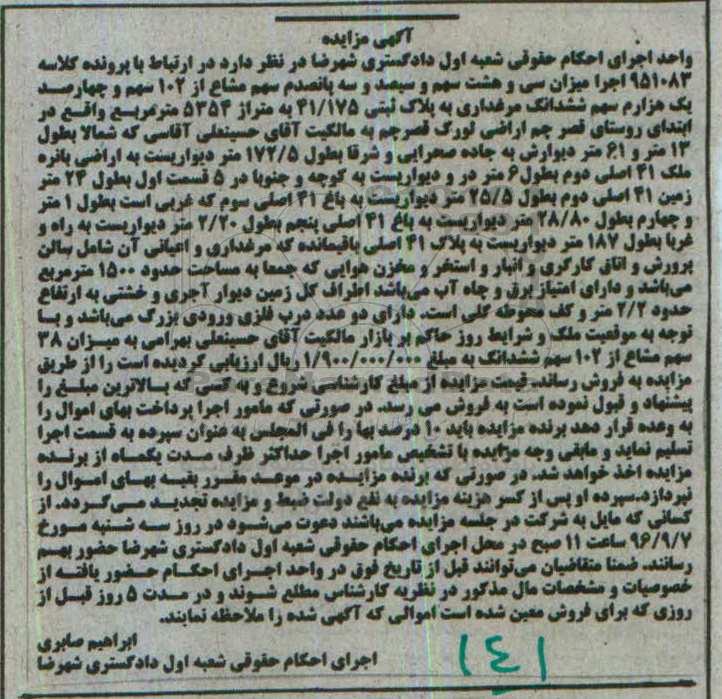 آگهی مزایده
واحد اجرای احکام حقوقی شعبه اول دادگستری شهرضا در نظر دارد در ارتباط با پرونده کلاسه
۹۵۱۰۸۳ اجرا میزان سی و هشت سهم و سیصد و سه پانصدم سهم مشاع از ۱۰۲ سهم و چهارصد
یک هزارم سهم ششدانگ مرغداری به پلاک ثبتی ۴۱/۱۷۵ به متراژ ۵۳۵۴ مترمربع واقع در
ابتدای روستای قصر چم اراضی لورک قصرچم به مالکیت آقای حسینعلی آقاسی که شمالا بطول
۱۳ متر و ۶۱ متر دیوارش به جاده صحرایی و شرقا بطول ۱۷۲/۵ متر دیواریست به اراضی بانره
ملک ۴۱ اصلی دوم بطول ۶ متر در و دیواریست به کوچه و جنوبا در ۵ قسمت اول بطول ۲۴ متر
زمین ۴۱ اصلی دوم بطول ۲۵/۵ متر دیواریست به باغ ۴۱ اصلی سوم که غربی است بطول ۱ متر
و چهارم بطول ۲۸/۸۰ متر دیواریست به باغ ۴۱ اصلی پنجم بطول ۲/۲۰ متر دیواریست به راه و
غربا بطول ۱۸۷ متر دیواریست به پلاک ۴۱ اصلی باقیمانده که مرغداری و اعیانی آن شامل سالن
پرورش و اتاق کارگری و انبار و استخر و مخزن هوایی که جمعا به مساحت حدود ۱۵۰۰ مترمربع
می‌باشد و دارای امتیاز برق و چاه آب می‌باشد اطراف کل زمین دیوار آجری و خشتی به ارتفاع
حدود ۲/۲ متر و کف محوطه گلی است. دارای دو عدد درب فلزی ورودی بزرگ می‌باشد و با
توجه به موقعیت ملک و شرایط روز حاکم بر بازار مالکیت آقای حسینعلی بهرامی به میزان ۳۸
سهم مشاع از ۱۰۲ سهم ششدانگ به مبلغ ۱/۹۰۰/۰۰۰/۰۰۰ ریال ارزیابی گردیده است را از طریق
مزایده به فروش رساند. قیمت مزایده از مبلغ کارشناسی شروع و به کسی که بالاترین مبلغ را
پیشنهاد و قبول نموده است به فروش می رسد. در صورتی که مامور اجرا پرداخت بهای اموال را
به وعده قرار دهد برنده مزایده باید ۱۰ درصد بها را فی المجلس به عنوان سپرده به قسمت اجرا
تسلیم نماید و مابقی وجه مزایده با تشخیص مامور اجرا حداکثر ظرف مدت یکماه از برنده
مزایده اخذ خواهد شد. در صورتی که برنده مزایده در موعد مقرر بقیه بهای اموال را
نپردازد. سپرده او پس از کسر هزینه مزایده به نفع دولت ضبط و مزایده تجدید می‌گردد. از
کسانی که مایل به شرکت در جلسه مزایده می‌باشند دعوت می‌شود در روز سه شنبه مورخ
۹۶/۹/۷ ساعت ۱۱ صبح در محل اجرای احکام حقوقی شعبه اول دادگستری شهرضا حضور بهم
رسانند. ضمنا متقاضیان می‌توانند قبل از تاریخ فوق در واحد اجرای احکام حضور یافته از
خصوصیات و مشخصات مال مذکور در نظریه کارشناس مطلع شوند و در مدت ۵ روز قبل از
روزی که برای فروش معین شده است اموالی که آگهی شده را ملاحظه نمایند.
ابراهیم صابری
اجرای احکام حقوقی شعبه اول دادگستری شهرضا
۱۴۱